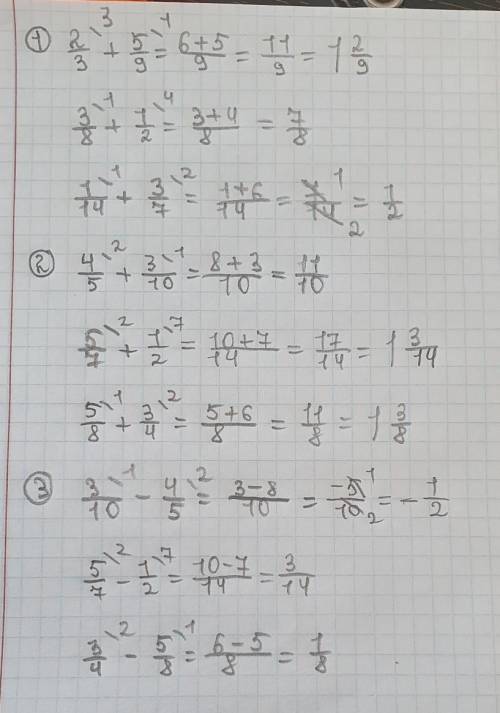 ① 2/3 \3 + 5/9 \1 = 6+5/9 = 11/9 = 1 2/9
3/8 \1 + 1/2 \4 = 3+4/8 = 7/8
1/14 \1 + 3/7 \2 = 1+6/14 = 7/14 1 2 = 1/2
② 4/5 \2 + 3/10 \1 = 8+3/10 = 11/10
5/7 \2 + 1/2 \7 = 10+7/14 = 17/14 = 1 3/14
5/8 \1 + 3/4 \2 = 5+6/8 = 11/8 = 1 3/8
③ 3/10 \1 - 4/5 \2 = 3-8/10 = -5/10 1 2 = - 1/2
5/7 \2 - 1/2 \7 = 10-7/14 = 3/14
3/4 \2 - 5/8 \1 = 6-5/8 = 1/8